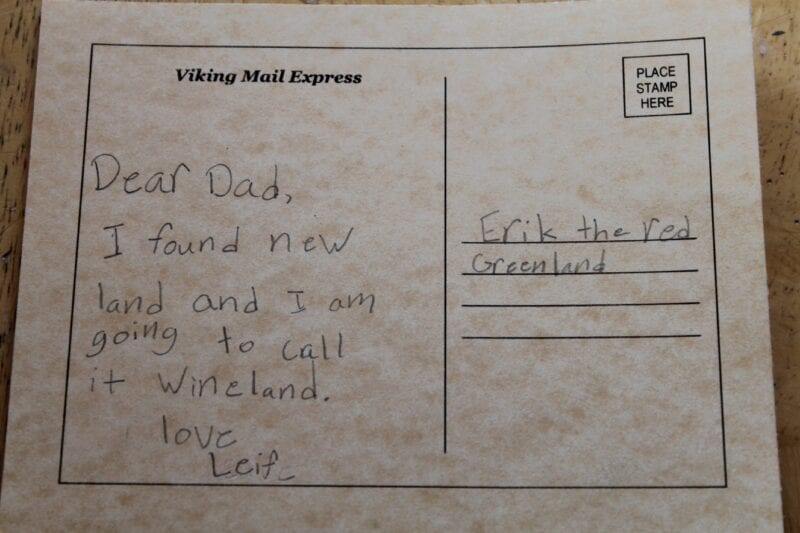 Viking Mail Express
PLACE
STAMP
HERE
Dear Dad,
I found new
land and I am
going to call
it wineland.
love
Leif
Erik the red
Greenland